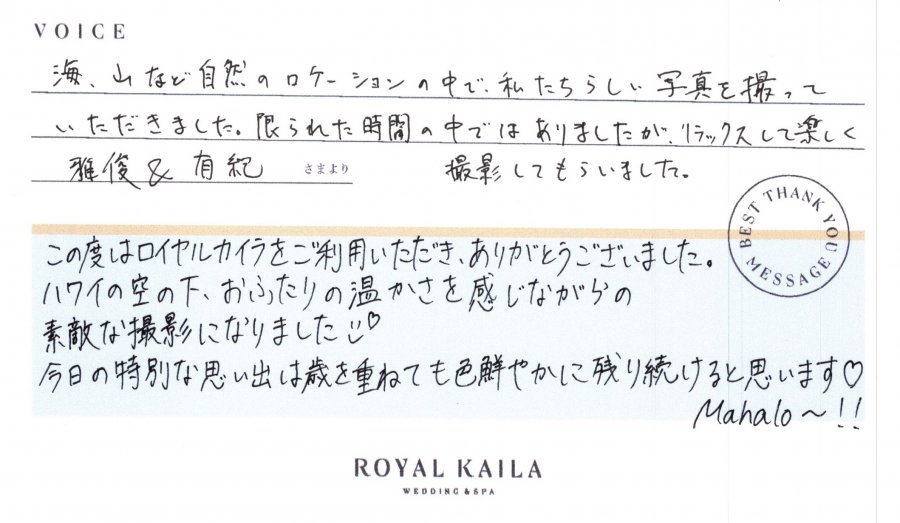 VOICE
海、山など自然のロケーションの中で、私たちらしい写真を撮って
いただきました。限られた時間の中ではありましたが、リラックスして楽しく
撮影してもらいました。
雅俊&有紀 さまより
BEST THANK YOU MESSAGE
この度はロイヤルカイラをご利用いただき、ありがとうございました。
ハワイの空の下、おふたりの温かさを感じながらの
素敵な撮影になりました♡
今日の特別な思い出は歳を重ねても色鮮やかに残り続けると思います♡
Mahalo〜!!
ROYAL KAILA
WEDDING & SPA